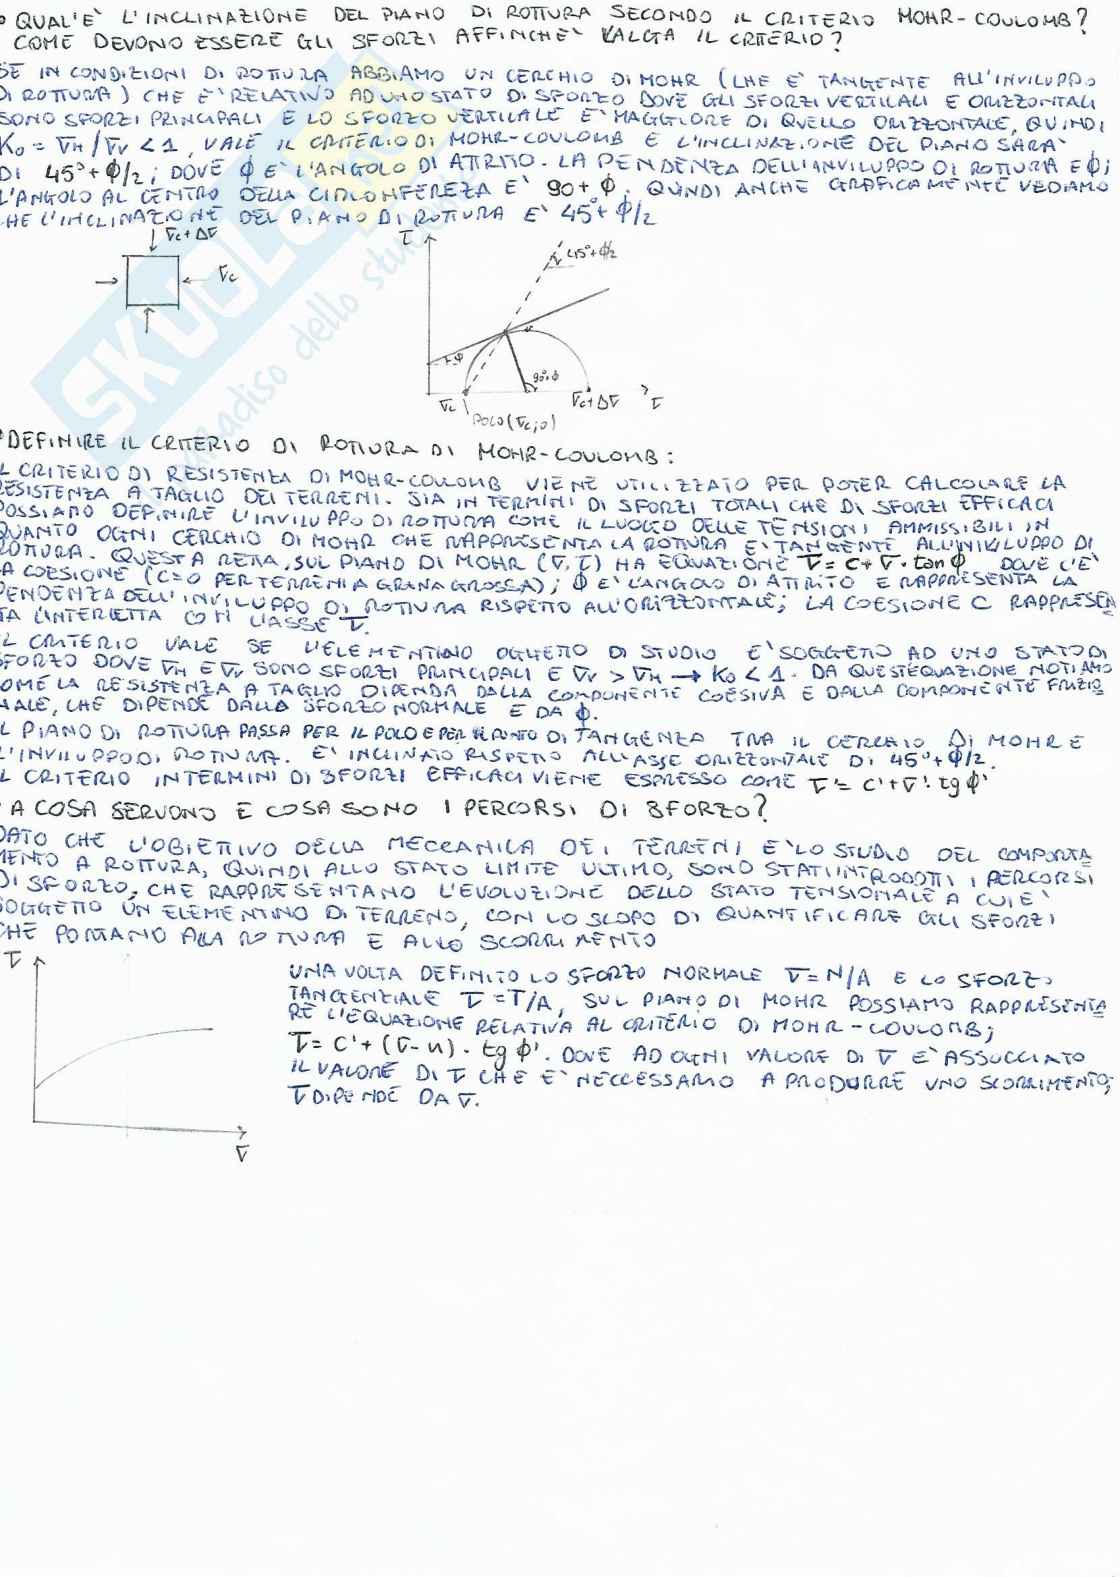 QUAL'E` L'INCLINAZIONE DEL PIANO DI ROTTURA SECONDO IL CRITERIO MOHR-COULOMB?
COME DEVONO ESSERE GLI SFORZI AFFINCHE` VALGA IL CRITERIO?
SE IN CONDIZIONI DI ROTTURA ABBIAMO UN CERCHIO DI MOHR (CHE E` TANGENTE ALL'INVILUPPO
DI ROTTURA) CHE E` RELATIVO AD UNO STATO DI SFORZO DOVE GLI SFORZI VERTICALI E ORIZZONTALI
SONO SFORZI PRINCIPALI E LO SFORZO VERTICALE E` MAGGIORE DI QUELLO ORIZZONTALE, QUINDI
K₀ = σH/σV < 1, VALE IL CRITERIO DI MOHR-COULOMB E L'INCLINAZIONE DEL PIANO SARA`
DI 45°+ φ/2; DOVE φ E` L'ANGOLO DI ATTRITO. LA PENDENZA DELL'INVILUPPO DI ROTTURA E φ;
L'ANGOLO AL CENTRO DELLA CIRCONFEREZA E` 90+φ. QUINDI ANCHE GRAFICAMENTE VEDIAMO
CHE L'INCLINAZIONE DEL PIANO DI ROTTURA E` 45°+ φ/2
σc+Δσ
σc
τ
45°+φ/2
φ
90°+φ
σc
σc+Δσ
σ
POLO (σc;0)
SKUOLA.net
il paradiso dello studente
DEFINIRE IL CRITERIO DI ROTTURA DI MOHR-COULOMB:
IL CRITERIO DI RESISTENZA DI MOHR-COULOMB VIENE UTILIZZATO PER POTER CALCOLARE LA
RESISTENZA A TAGLIO DEI TERRENI. SIA IN TERMINI DI SFORZI TOTALI CHE DI SFORZI EFFICACI
POSSIAMO DEFINIRE L'INVILUPPO DI ROTTURA COME IL LUOGO DELLE TENSIONI AMMISSIBILI IN
QUANTO OGNI CERCHIO DI MOHR CHE RAPPRESENTA LA ROTTURA E` TANGENTE ALL'INVILUPPO DI
ROTTURA. QUESTA RETTA, SUL PIANO DI MOHR (σ,τ) HA EQUAZIONE τ= c+σ·tanφ DOVE C'E`
LA COESIONE (C=0 PER TERRENI A GRANA GROSSA); φ E` L'ANGOLO DI ATTRITO E RAPPRESENTA LA
PENDENZA DELL'INVILUPPO DI ROTTURA RISPETTO ALL'ORIZZONTALE; LA COESIONE C RAPPRESEN
TA L'INTERCETTA CON L'ASSE τ.
IL CRITERIO VALE SE L'ELEMENTINO OGGETTO DI STUDIO E` SOGGETTO AD UNO STATO DI
SFORZO DOVE σH E σV SONO SFORZI PRINCIPALI E σV > σH → K₀ < 1. DA QUEST'EQUAZIONE NOTIAMO
COME LA RESISTENZA A TAGLIO DIPENDA DALLA COMPONENTE COESIVA E DALLA COMPONENTE FRIZIO
NALE, CHE DIPENDE DALLO SFORZO NORMALE E DA φ.
IL PIANO DI ROTTURA PASSA PER IL POLO E PER IL PUNTO DI TANGENZA TRA IL CERCHIO DI MOHR E
L'INVILUPPO DI ROTTURA. E` INCLINATO RISPETTO ALL'ASSE ORIZZONTALE DI 45°+ φ/2.
IL CRITERIO IN TERMINI DI SFORZI EFFICACI VIENE ESPRESSO COME τ'= c'+σ'·tgφ'
A COSA SERVONO E COSA SONO I PERCORSI DI SFORZO?
DATO CHE L'OBIETTIVO DELLA MECCANICA DEI TERRENI E` LO STUDIO DEL COMPORTA
MENTO A ROTTURA, QUINDI ALLO STATO LIMITE ULTIMO, SONO STATI INTRODOTTI I PERCORSI
DI SFORZO, CHE RAPPRESENTANO L'EVOLUZIONE DELLO STATO TENSIONALE A CUI E`
SOGGETTO UN ELEMENTINO DI TERRENO, CON LO SCOPO DI QUANTIFICARE GLI SFORZI
CHE PORTANO ALLA ROTTURA E ALLO SCORRIMENTO
τ
σ
UNA VOLTA DEFINITO LO SFORZO NORMALE σ=N/A E LO SFORZO
TANGENZIALE τ=T/A, SUL PIANO DI MOHR POSSIAMO RAPPRESENTA
RE L'EQUAZIONE RELATIVA AL CRITERIO DI MOHR-COULOMB;
τ= c'+(σ-u)·tgφ'. DOVE AD OGNI VALORE DI σ E` ASSOCCIATO
IL VALORE DI τ CHE E` NECCESSARIO A PRODURRE UNO SCORRIMENTO;
τ DIPENDE DA σ.